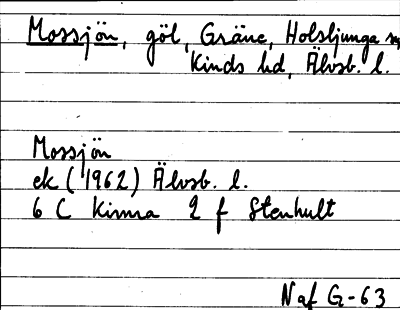 Mossjön, göl, Gräne, Holsljunga sn,
Kinds hd, Älvsb. l.
Mossjön
ek (1962) Älvsb. l.
6 C Kinna 2 f Stenhult
Naf G-63